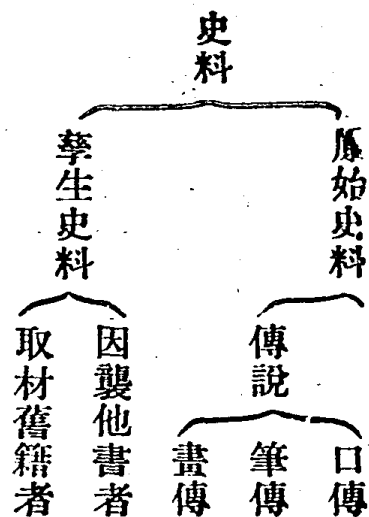 史料
原始史料
傳說
口傳
筆傳
畫傳
孳生史料
因襲他書者
取材舊籍者